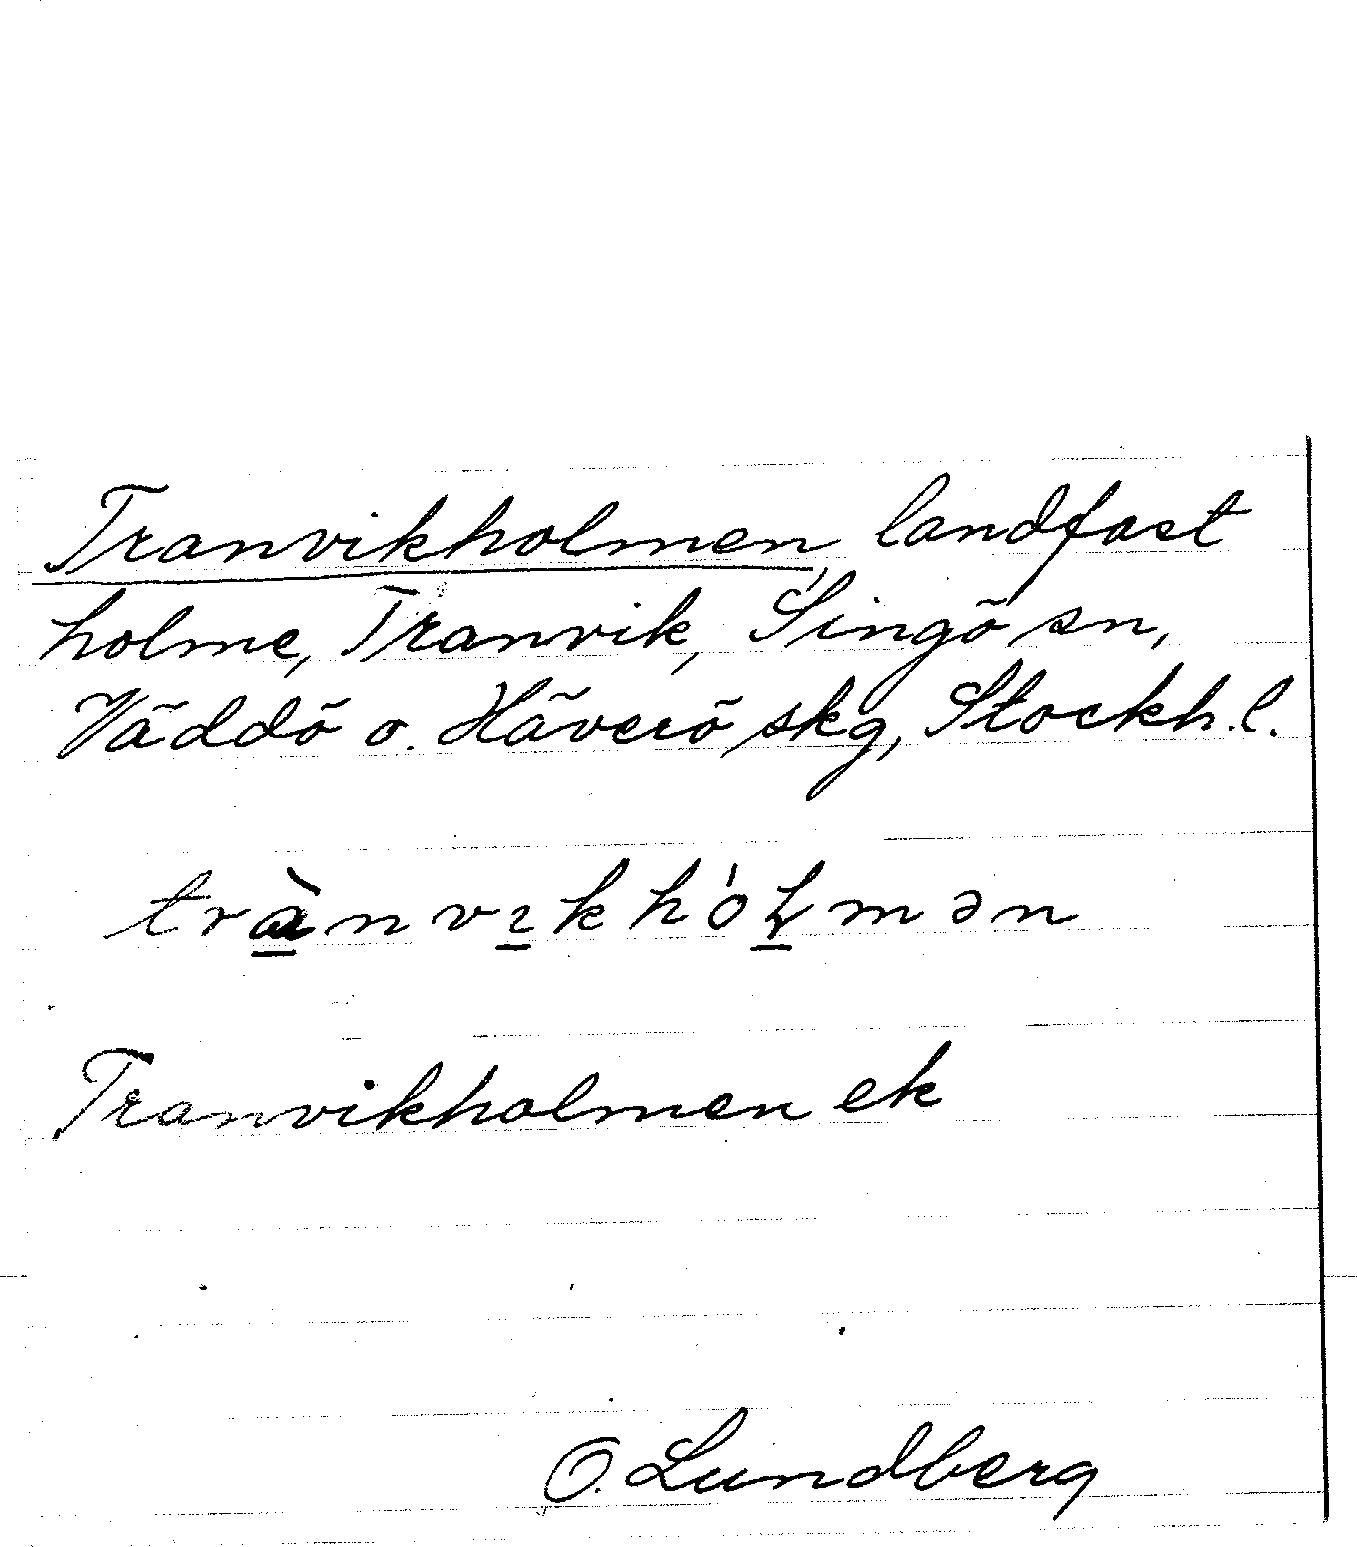 Tranvikholmen, landfast
holme, Tranvik, Singö sn,
Väddö o. Häverö skg, Stockh.l.
trànvɪkhólmən
Tranvikholmen ek
O. Lundberg